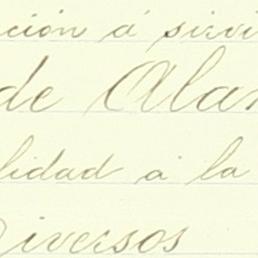 ación á sirvi
de Alan
lidad a la
Diversos